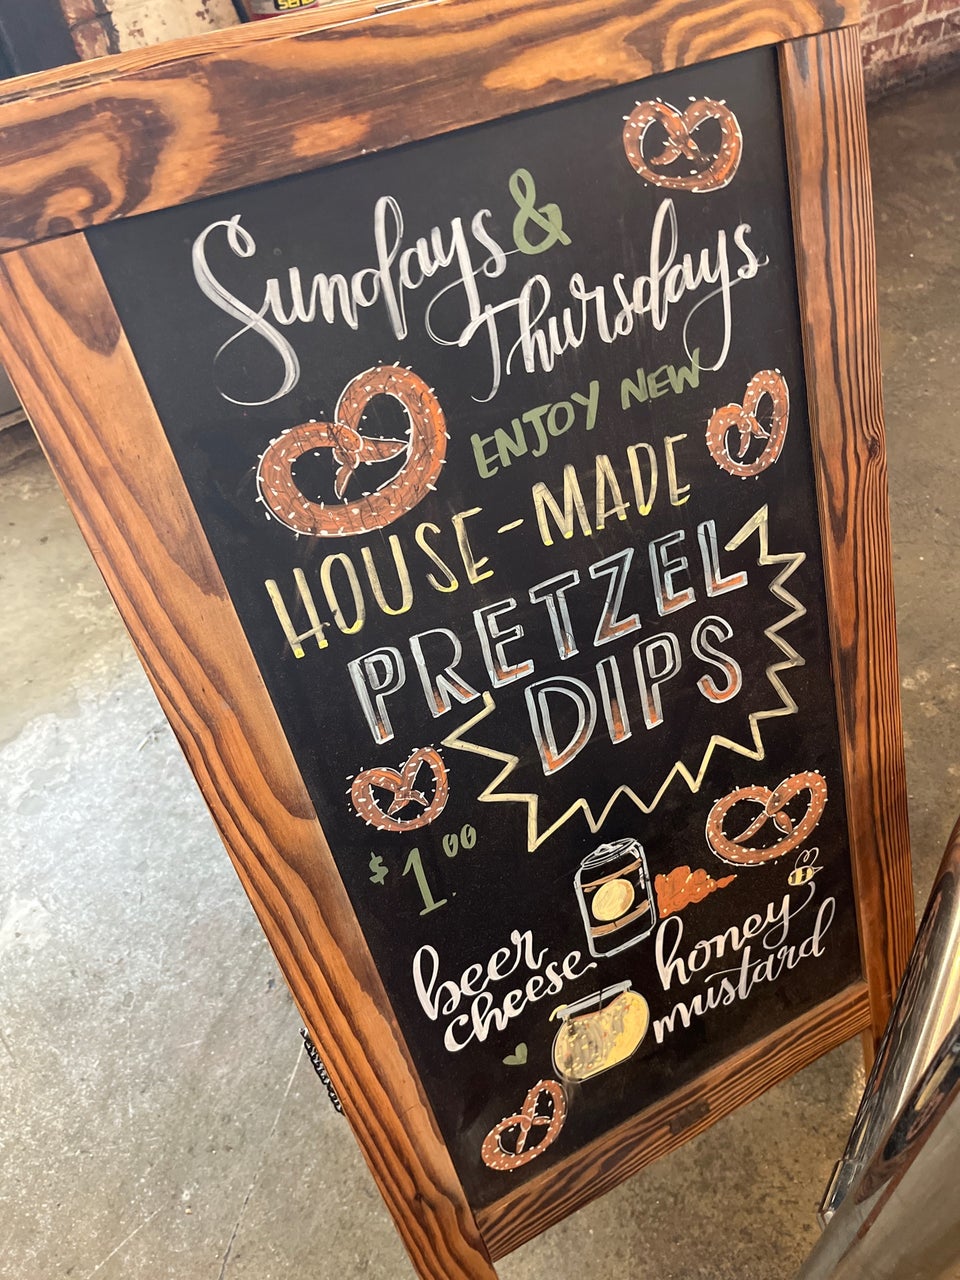 Sundays &
Thursdays
ENJOY NEW
HOUSE-MADE
PRETZEL
DIPS
$1.00
beer
cheese
honey
mustard